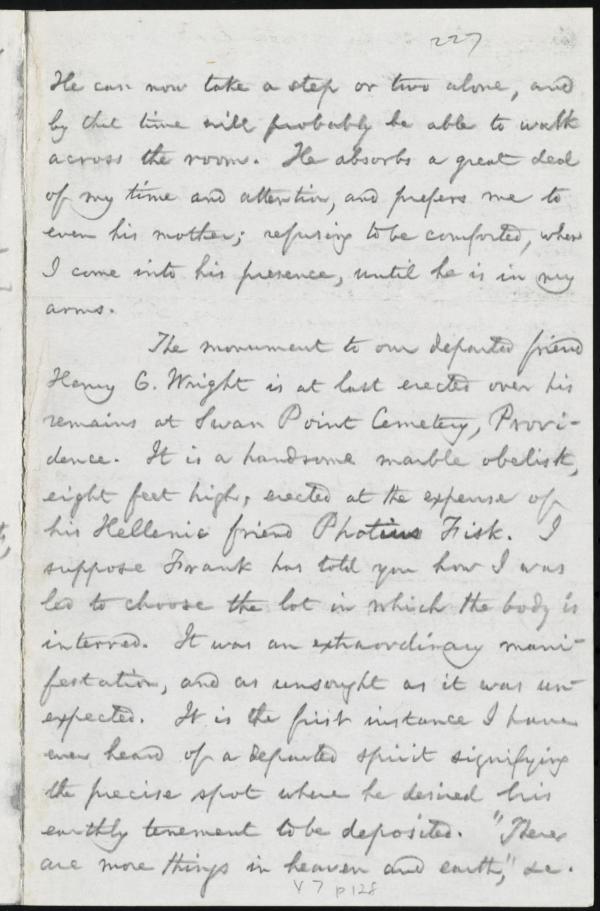 227
He can now take a step or two alone, and
by that time will probably be able to walk
across the room. He absorbs a great deal
of my time and attention, and prefers me to
even his mother; refusing to be comforted, when
I come into his presence, until he is in my
arms.
The monument to our departed friend
Henry C. Wright is at last erected over his
remains at Swan Point Cemetery, Provi-
dence. It is a handsome marble obelisk,
eight feet high, erected at the expense of
his Hellenic friend Photius Fisk. I
suppose Frank has told you how I was
led to choose the lot in which the body is
interred. It was an extraordinary mani-
festation, and as unsought as it was un-
expected. It is the first instance I have
ever heard of a departed spirit signifying
the precise spot where he desired his
earthly tenement to be deposited. "There
are more things in heaven and earth," &c.
V 7 p 128